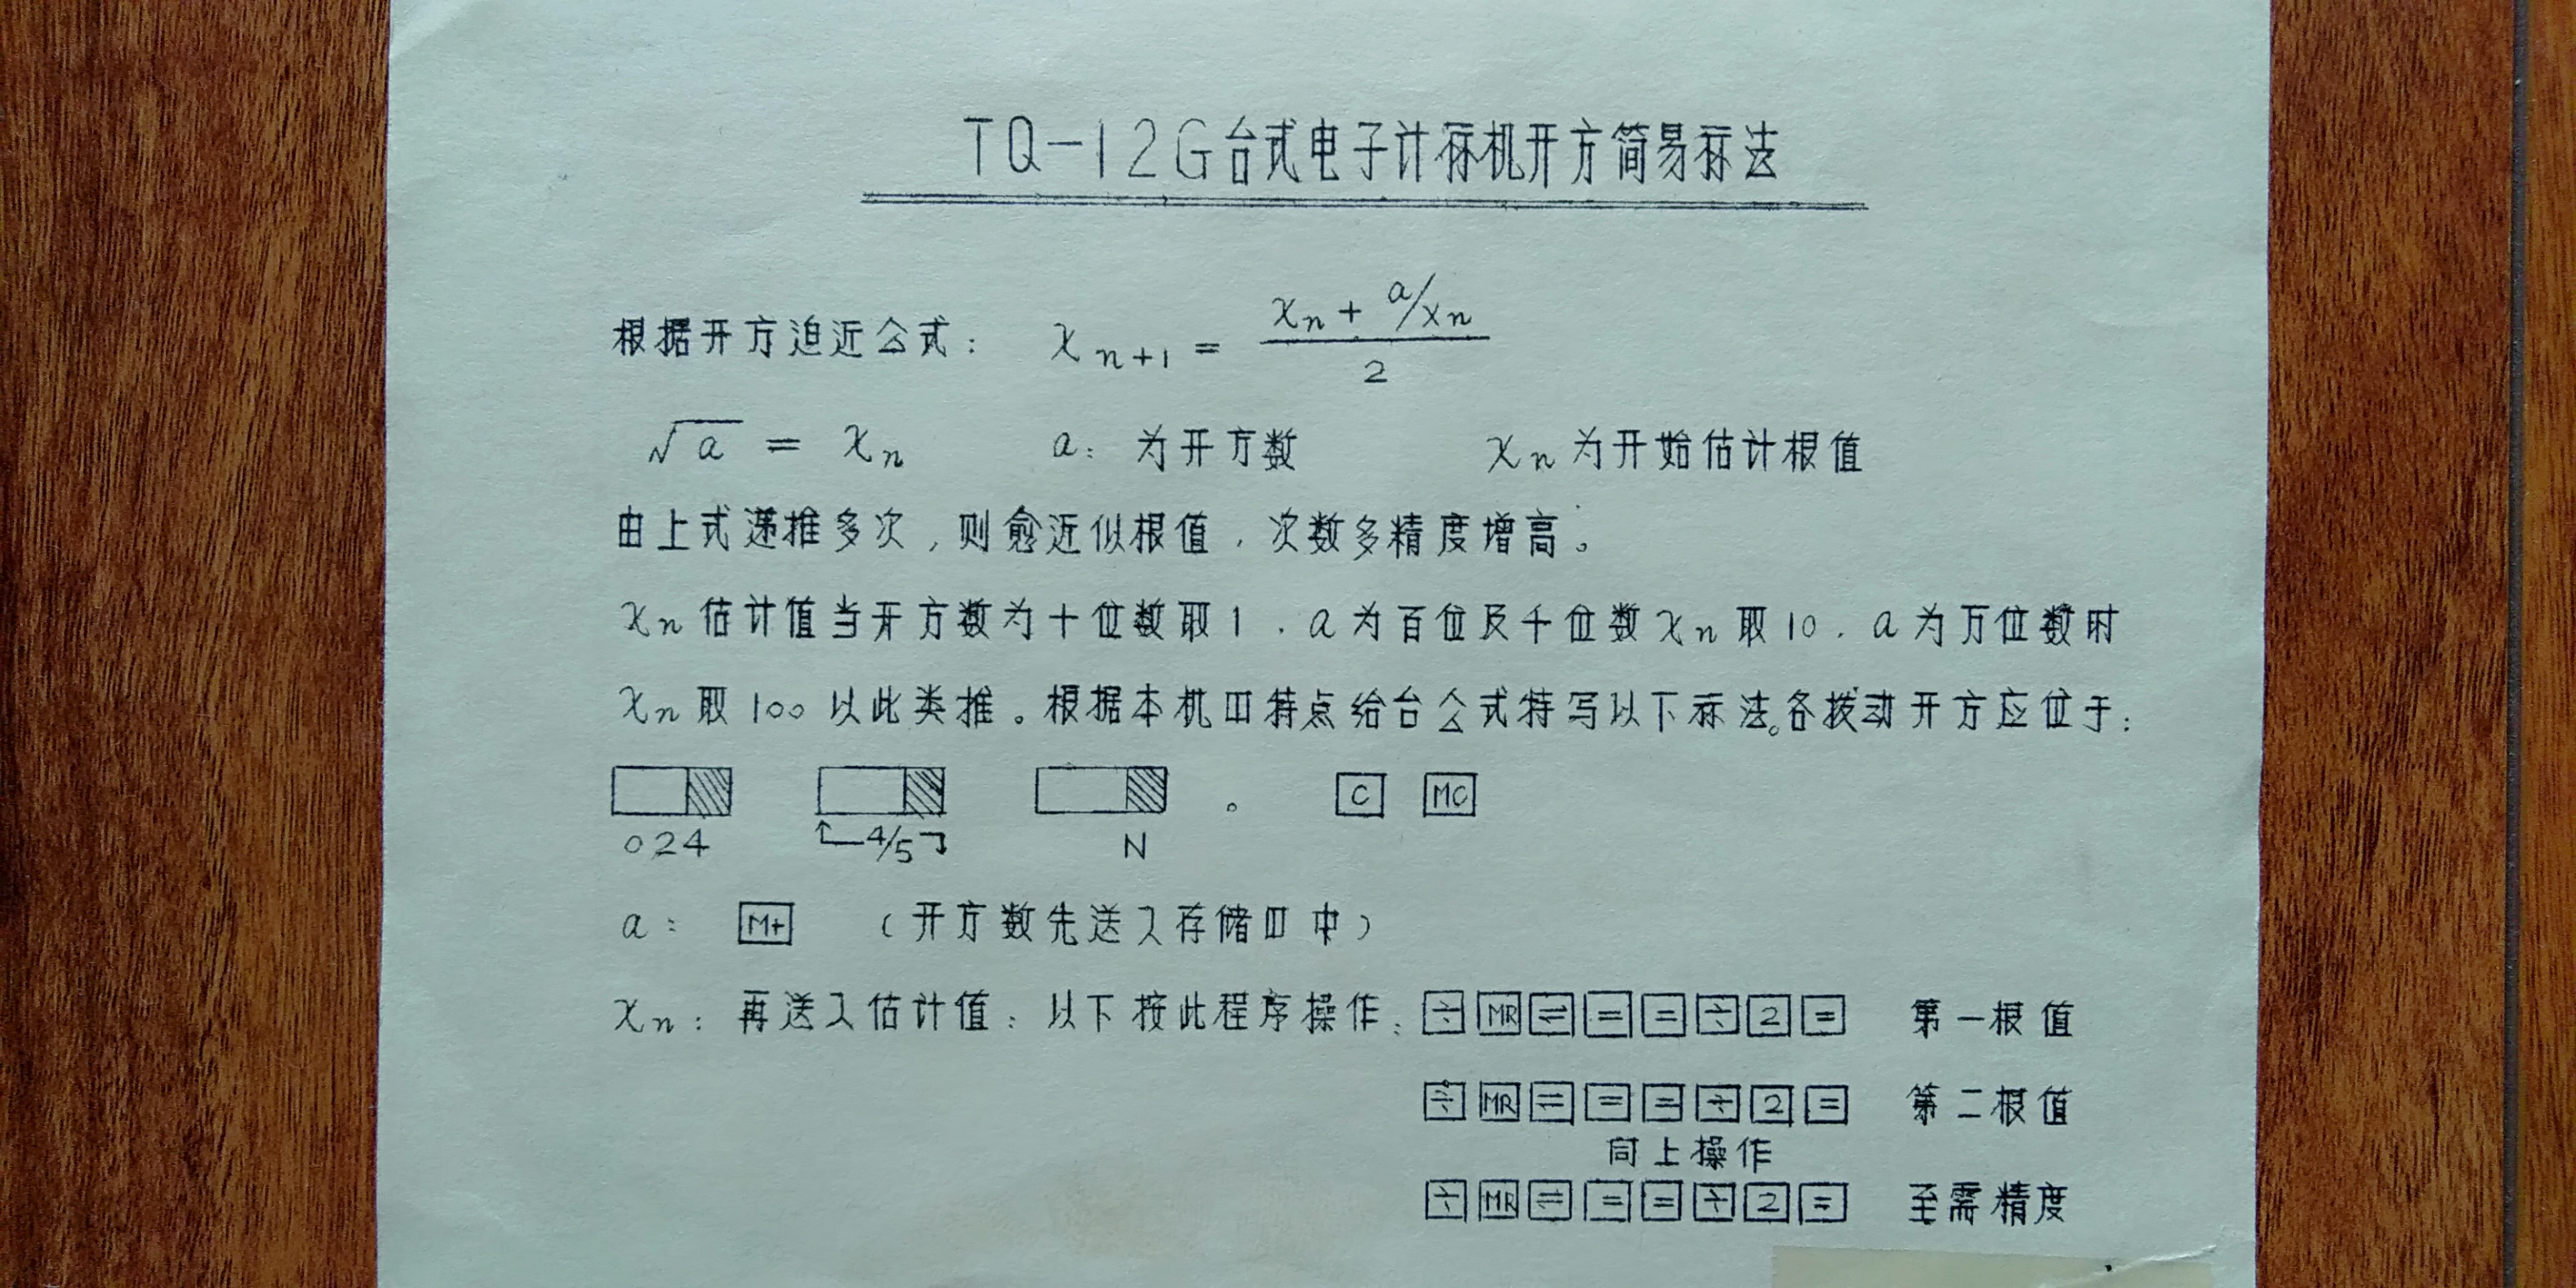 TQ-12G台式电子计祘机开方简易祘法
根据开方迫近公式: x n+1 = (xn + a/xn) / 2
√a = xn a: 为开方数 xn为开始估计根值
由上式递推多次,则愈近似根值,次数多精度增高。
xn估计值当开方数为十位数取1.a为百位及千位数xn取10.a为万位数时
xn取100以此类推。根据本机口特点给合公式特写以下祘法。各拨动开方应位于:
。 C MC
024 4/5 N
a: M+ (开方数先送入存储口中)
xn: 再送入估计值: 以下按此程序操作: ÷ MR ⇌ = = ÷ 2 = 第一根值
÷ MR ⇌ = = ÷ 2 = 第二根值
同上操作
÷ MR ⇌ = = ÷ 2 = 至需精度